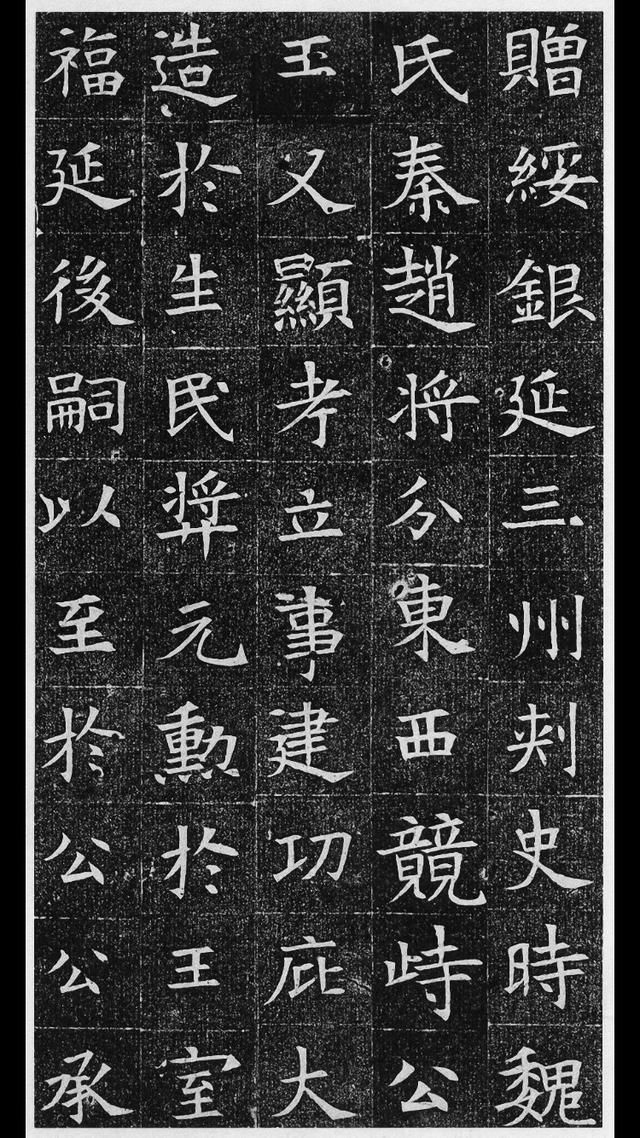 贈綏銀延三州刾史時魏
氏秦趙将分東西競峙公
王又顯考立事建功庇大
造於生民奨元勲於王室
福延後嗣以至於公公承